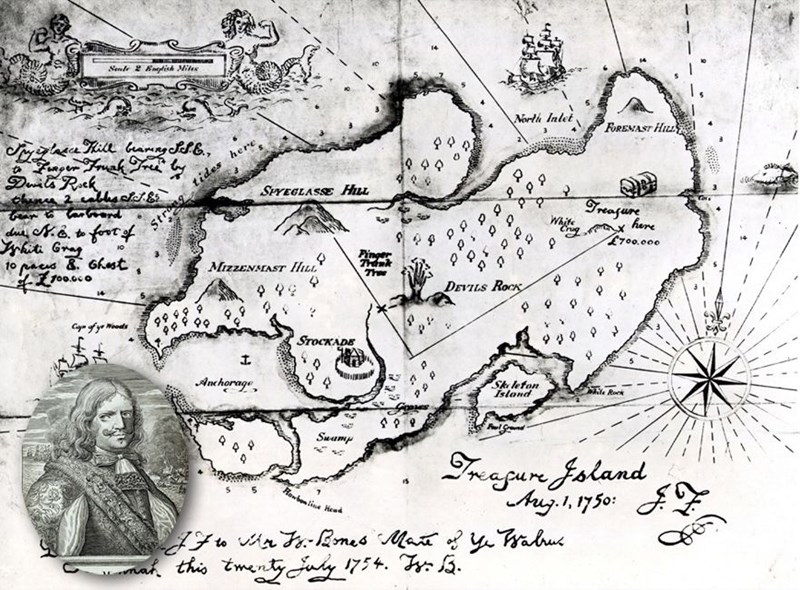 Scale 2 English Miles
North Inlet
FOREMAST HILL
Spyeglasse Hill bearing S.S.E.
to Finger Trunk Tree by
Devils Rock
thence 2 cables S.S.E.
bear to larboard
due N.E. to foot of
White Crag
10 paces E. Chest
of £700.000
Strong tides here
SPYEGLASSE HILL
White Crag
Treasure
here
£700.000
Finger
Trunk
Tree
MIZZENMAST HILL
DEVILS ROCK
Cape of ye Woods
STOCKADE
Anchorage
Skeleton
Island
White Rock
Graves
Foul Ground
Swamp
Hawbowline Head
Treasure Island
Aug. 1, 1750: J. F.
J. F to Mr W. Bones Mate of Ye Walrus
this twenty July 1754. W. B.